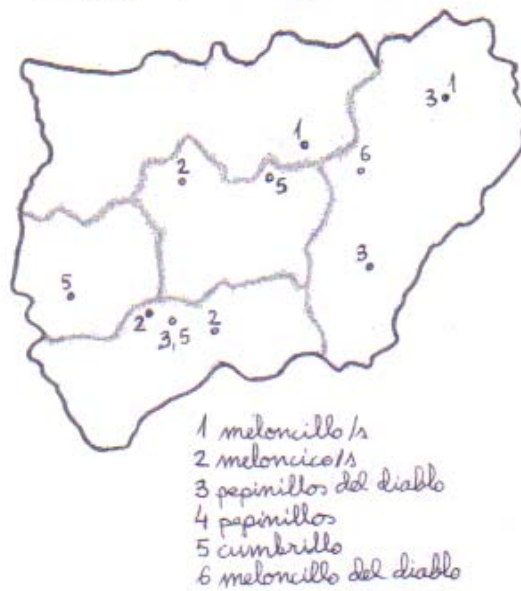 1
3
1
6
2
5
3
5
2
3,5
2
1 meloncillo/s
2 meloncico/s
3 pepinillos del diablo
4 pepinillos
5 cumbrillo
6 meloncillo del diablo